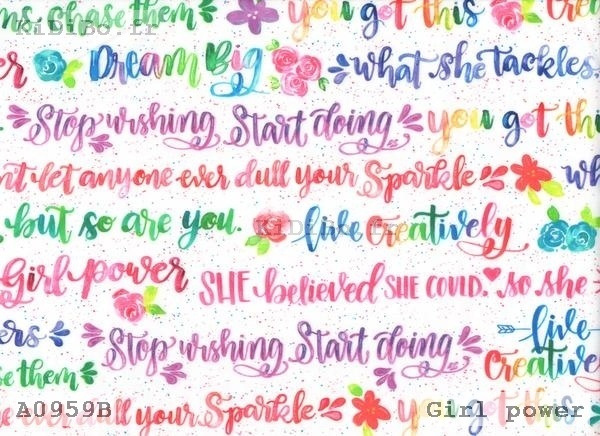 ms, chase them you got this Creati
KiDiBo.fr
er Dream Big what she tackles,
Stop wishing Start doing you got thi
n't let anyone ever dull your Sparkle wh
but so are you. live Creatively
KiDiBo.fr
Girl power SHE believed SHE COULD. so she
ers Stop wishing Start doing live Creative
se them
A0959B Girl power
e ever dull your Sparkle you got this